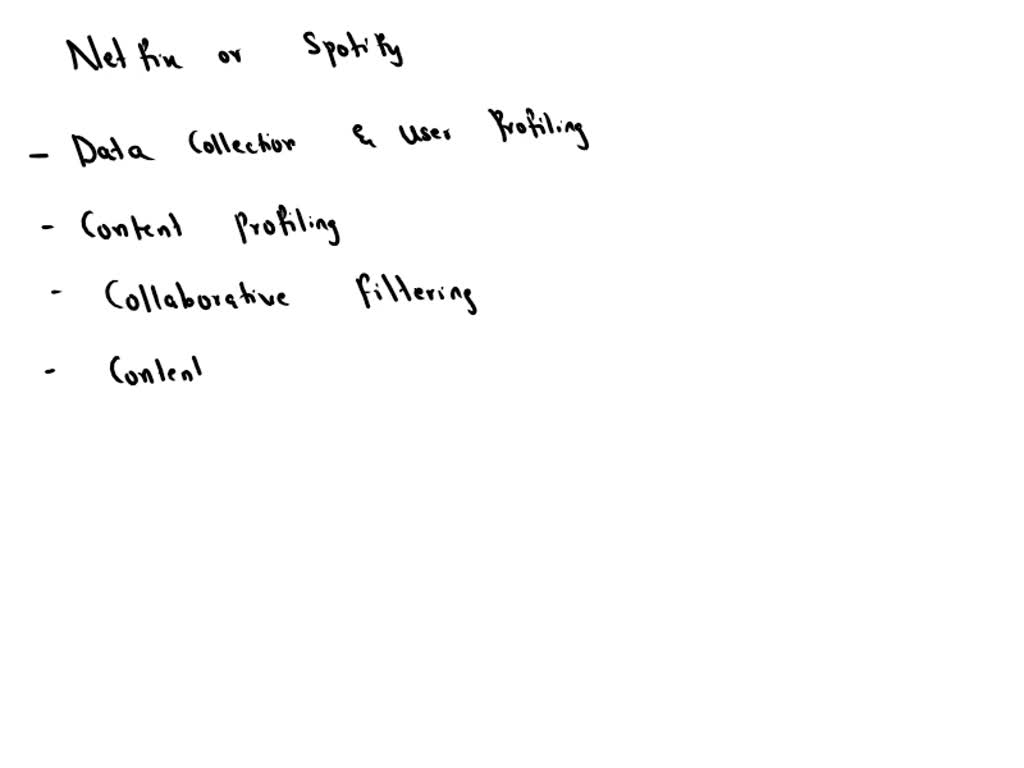 Netfix or Spotify
- Data Collection & User Profiling
- Content Profiling
- Collaborative filtering
- Content